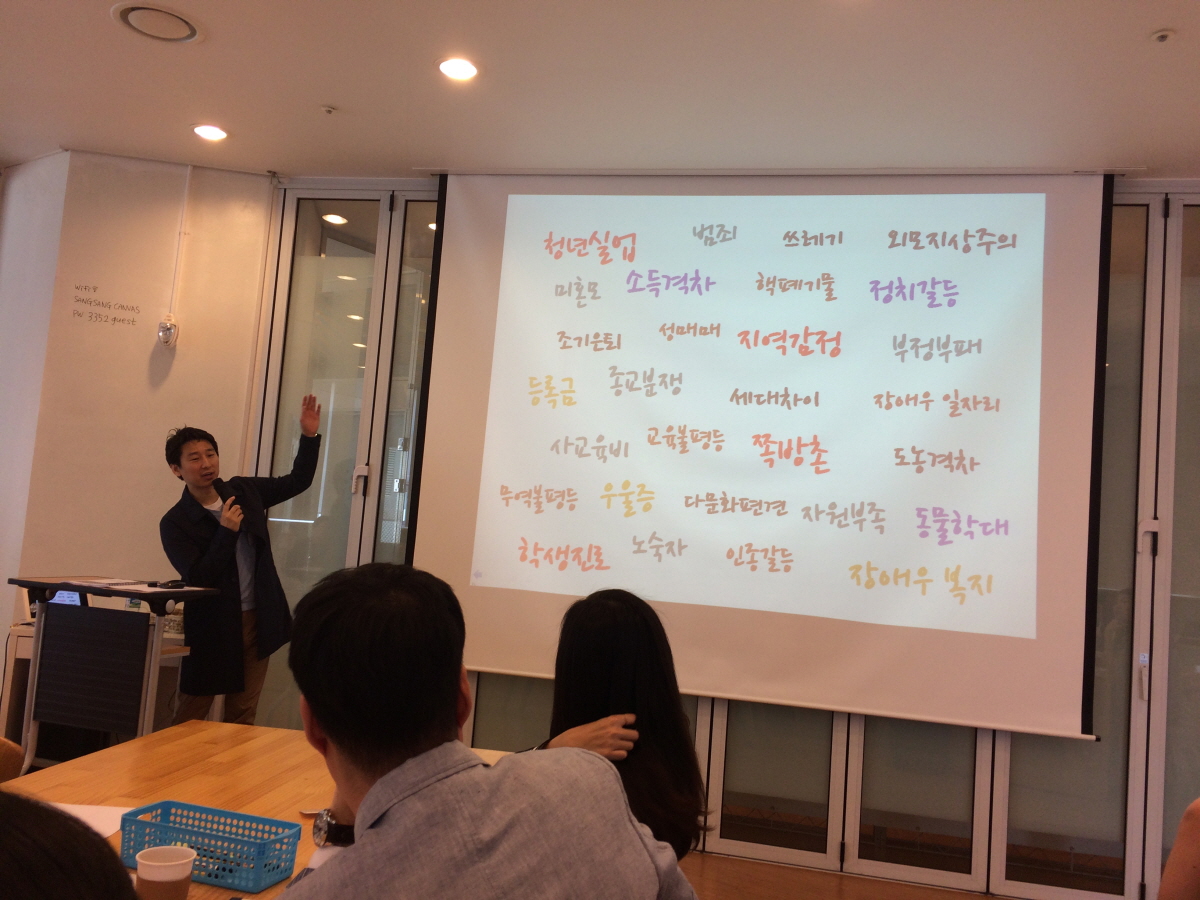 WiFi
SANGSANG CANVAS
PW: 3352guest
청년실업 범죄 쓰레기 외모지상주의
미혼모 소득격차 핵폐기물 정치갈등
조기은퇴 성매매 지역감정 부정부패
등록금 종교분쟁 세대차이 장애우 일자리
사교육비 교육불평등 쪽방촌 도농격차
무역불평등 우울증 다문화편견 자원부족 동물학대
학생진로 노숙자 인종갈등 장애우 복지